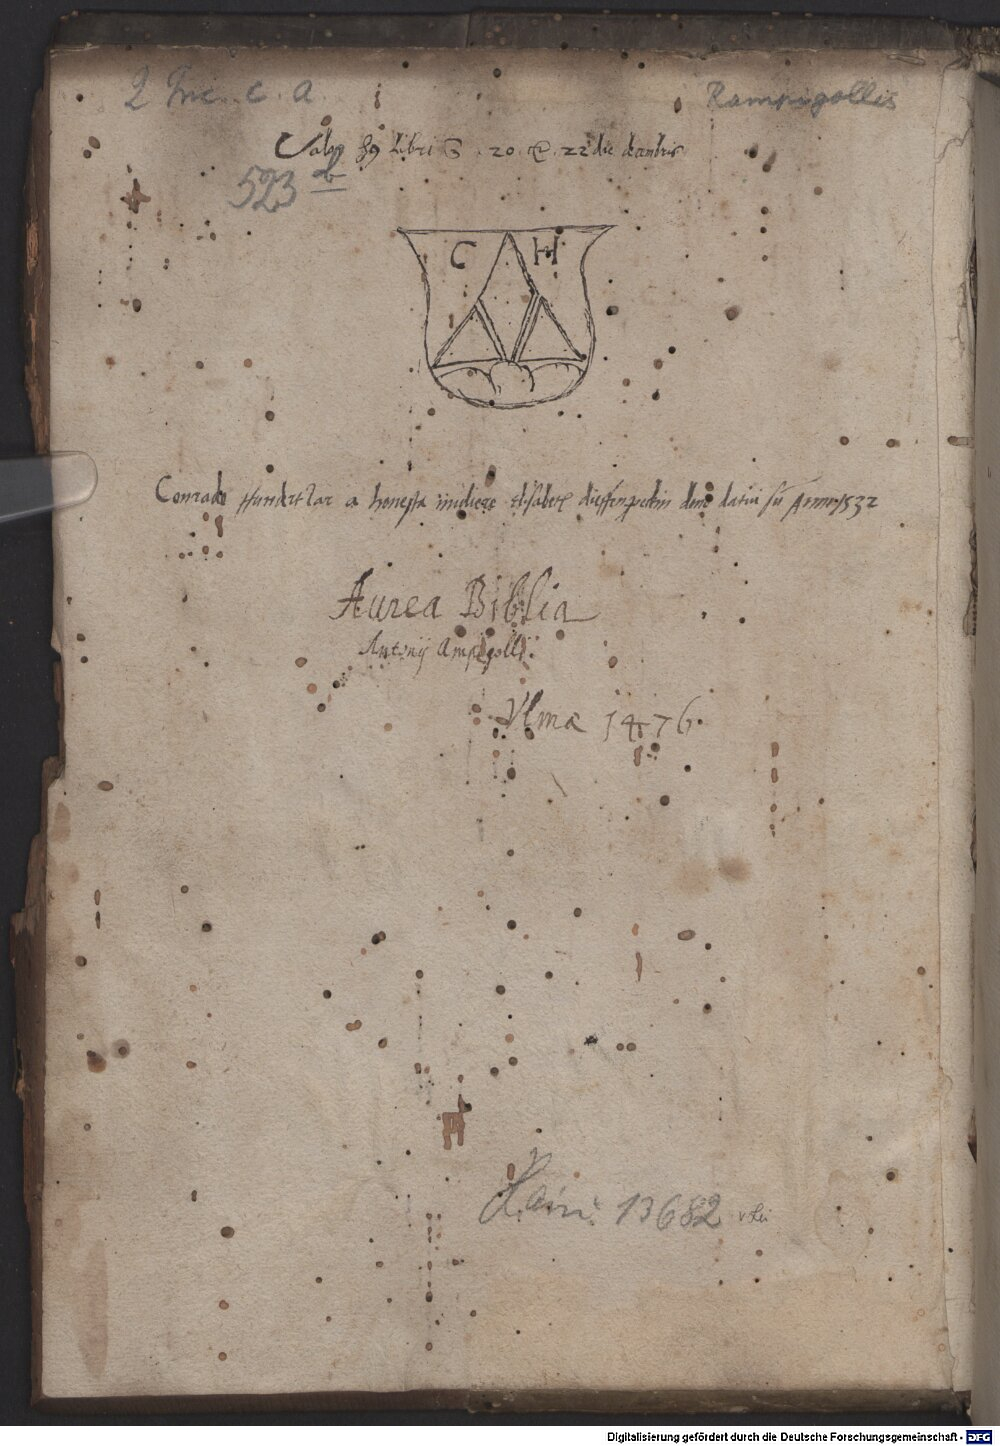 2 Inc. c. a.
Rampigollis
Libri 20 22 die decembris
523 b
C H
Conrado a honesta muliere dono Anno 1532
Aurea Biblia
Antonij Ampigollj.
Vlmæ 1476.
Hain: 13682
Digitalisierung gefördert durch die Deutsche Forschungsgemeinschaft - DFG